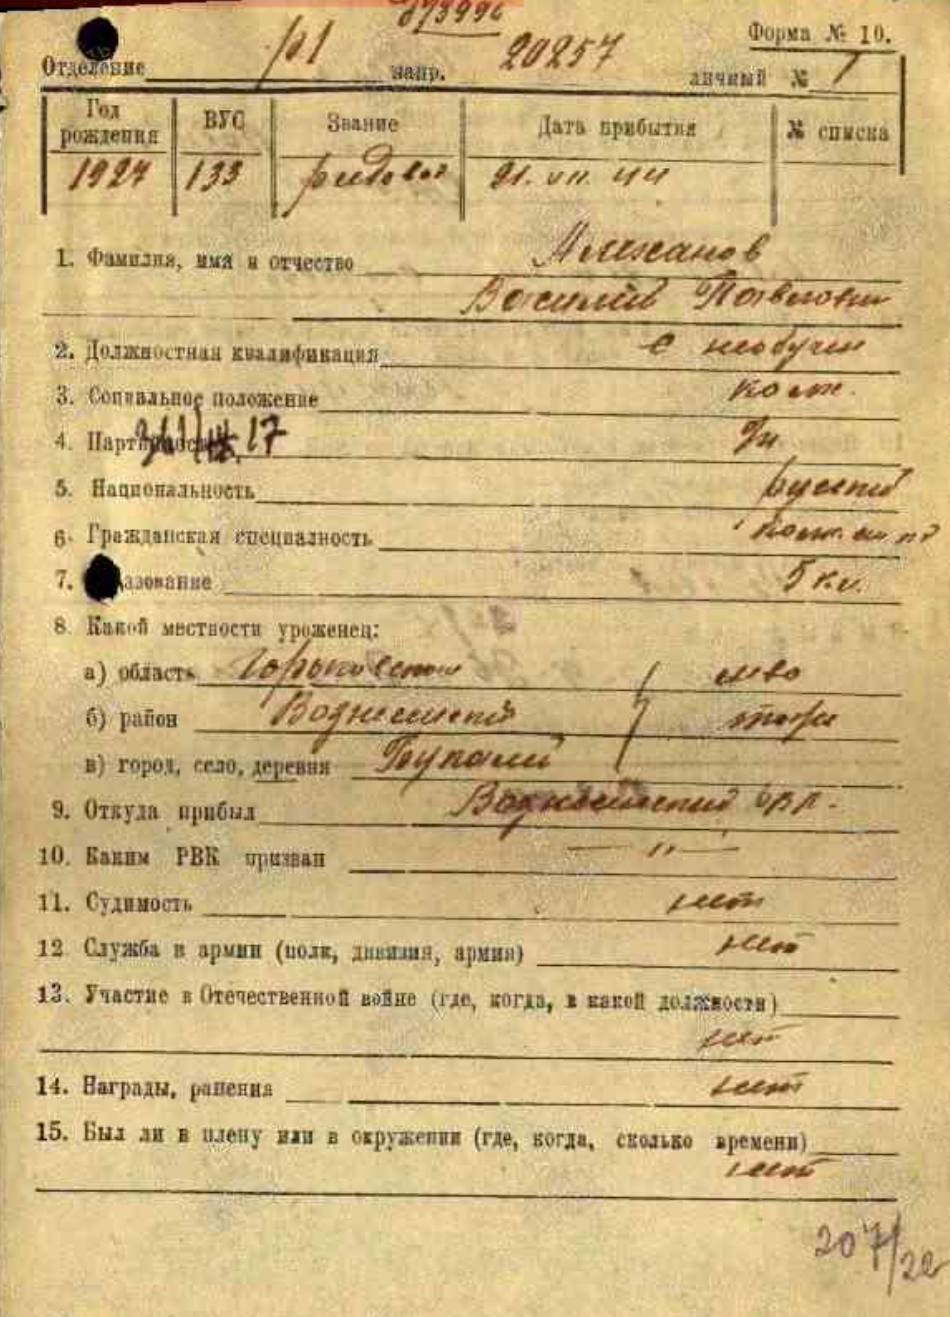 673996
Форма № 10.
Отделение р1 напр. 20257 личный № 1
Год рождения ВУС Звание Дата прибытия № списка
1927 133 рядовой 21.VII.44
1. Фамилия, имя и отчество
Василий Павлович
2. Должностная квалификация необучен
3. Социальное положение колх.
4. Партийность
5. Национальность русский
6. Гражданская специалность
7. азование 5 кл.
8. Какой местности уроженец:
а) область Горьковская
б) район Вознесенский
в) город, село, деревня
9. Откуда прибыл Вознесенский РВК.
10. Каким РВК призван — „ —
11. Судимость нет
12. Служба в армии (полк, дивизия, армия) нет
13. Участие в Отечественной войне (где, когда, в какой должности)
нет
14. Награды, ранения нет
15. Был ли в плену или в окружении (где, когда, сколько времени)
нет
207/22